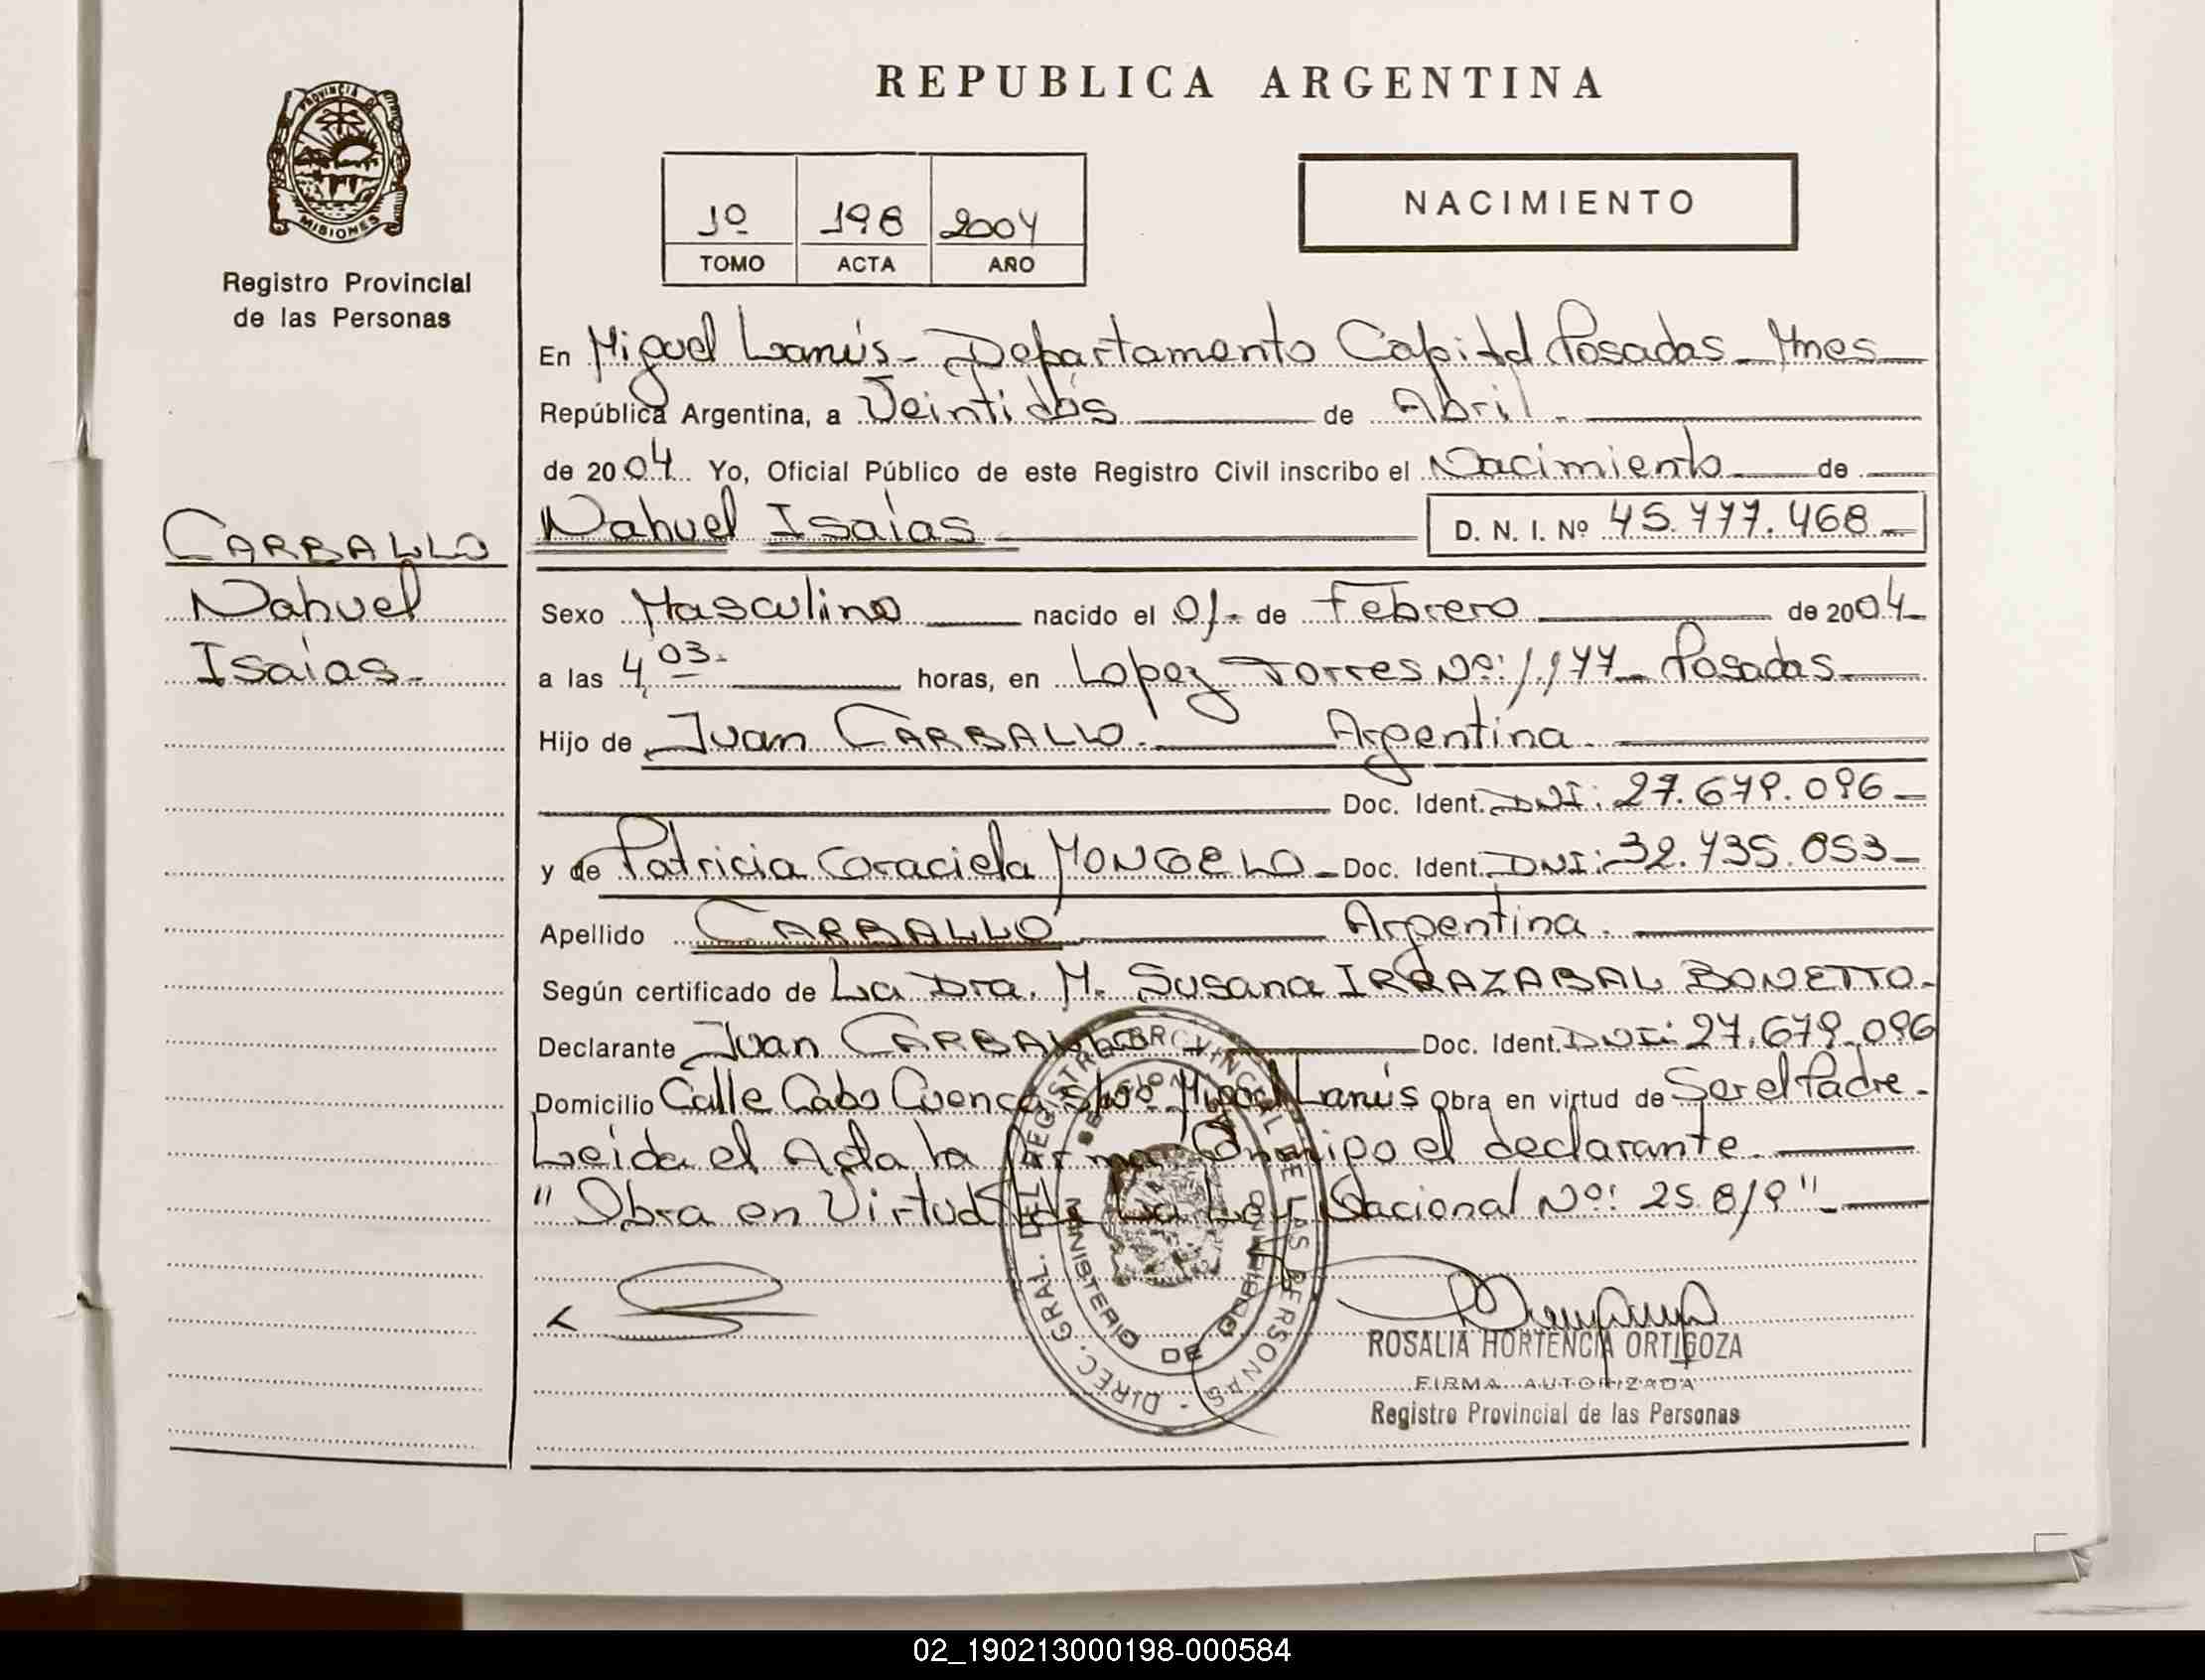 REPUBLICA ARGENTINA
PROVINCIA DE
MISIONES
Registro Provincial
de las Personas
1º 198 2004
TOMO ACTA AÑO
NACIMIENTO
CARBALLO
Nahuel
Isaías.
En Miguel Lanús - Departamento Capital Posadas - Mnes
República Argentina, a Veintidós de Abril.
de 2004. Yo, Oficial Público de este Registro Civil inscribo el Nacimiento de
Nahuel Isaías D. N. I. Nº 45.777.468.
Sexo Masculino nacido el 01- de Febrero de 2004
a las 4,03. horas, en Lopez Torres Nº: 1.177 - Posadas.
Hijo de Juan CARBALLO. Argentina.
Doc. Ident. DNI: 27.679.096
y de Patricia Graciela MONGELO - Doc. Ident. DNI: 32.735.053
Apellido CARBALLO Argentina.
Según certificado de La Dra. M. Susana IRRAZABAL BONETTO.
Declarante Juan CARBALLO Doc. Ident. DNI: 27.679.096
Domicilio Calle Cabo Cuenca S/Nº Miguel Lanús Obra en virtud de Ser el Padre.
Leida el Acta la firma Conmigo el declarante.
"Obra en Virtud de La Ley Nacional Nº: 25.819"
DIREC. GRAL. DEL REGISTRO PROVINCIAL DE LAS PERSONAS
MINISTERIO DE GOBIERNO
MISIONES
ROSALIA HORTENCIA ORTIGOZA
FIRMA AUTORIZADA
Registro Provincial de las Personas
02_190213000198-000584